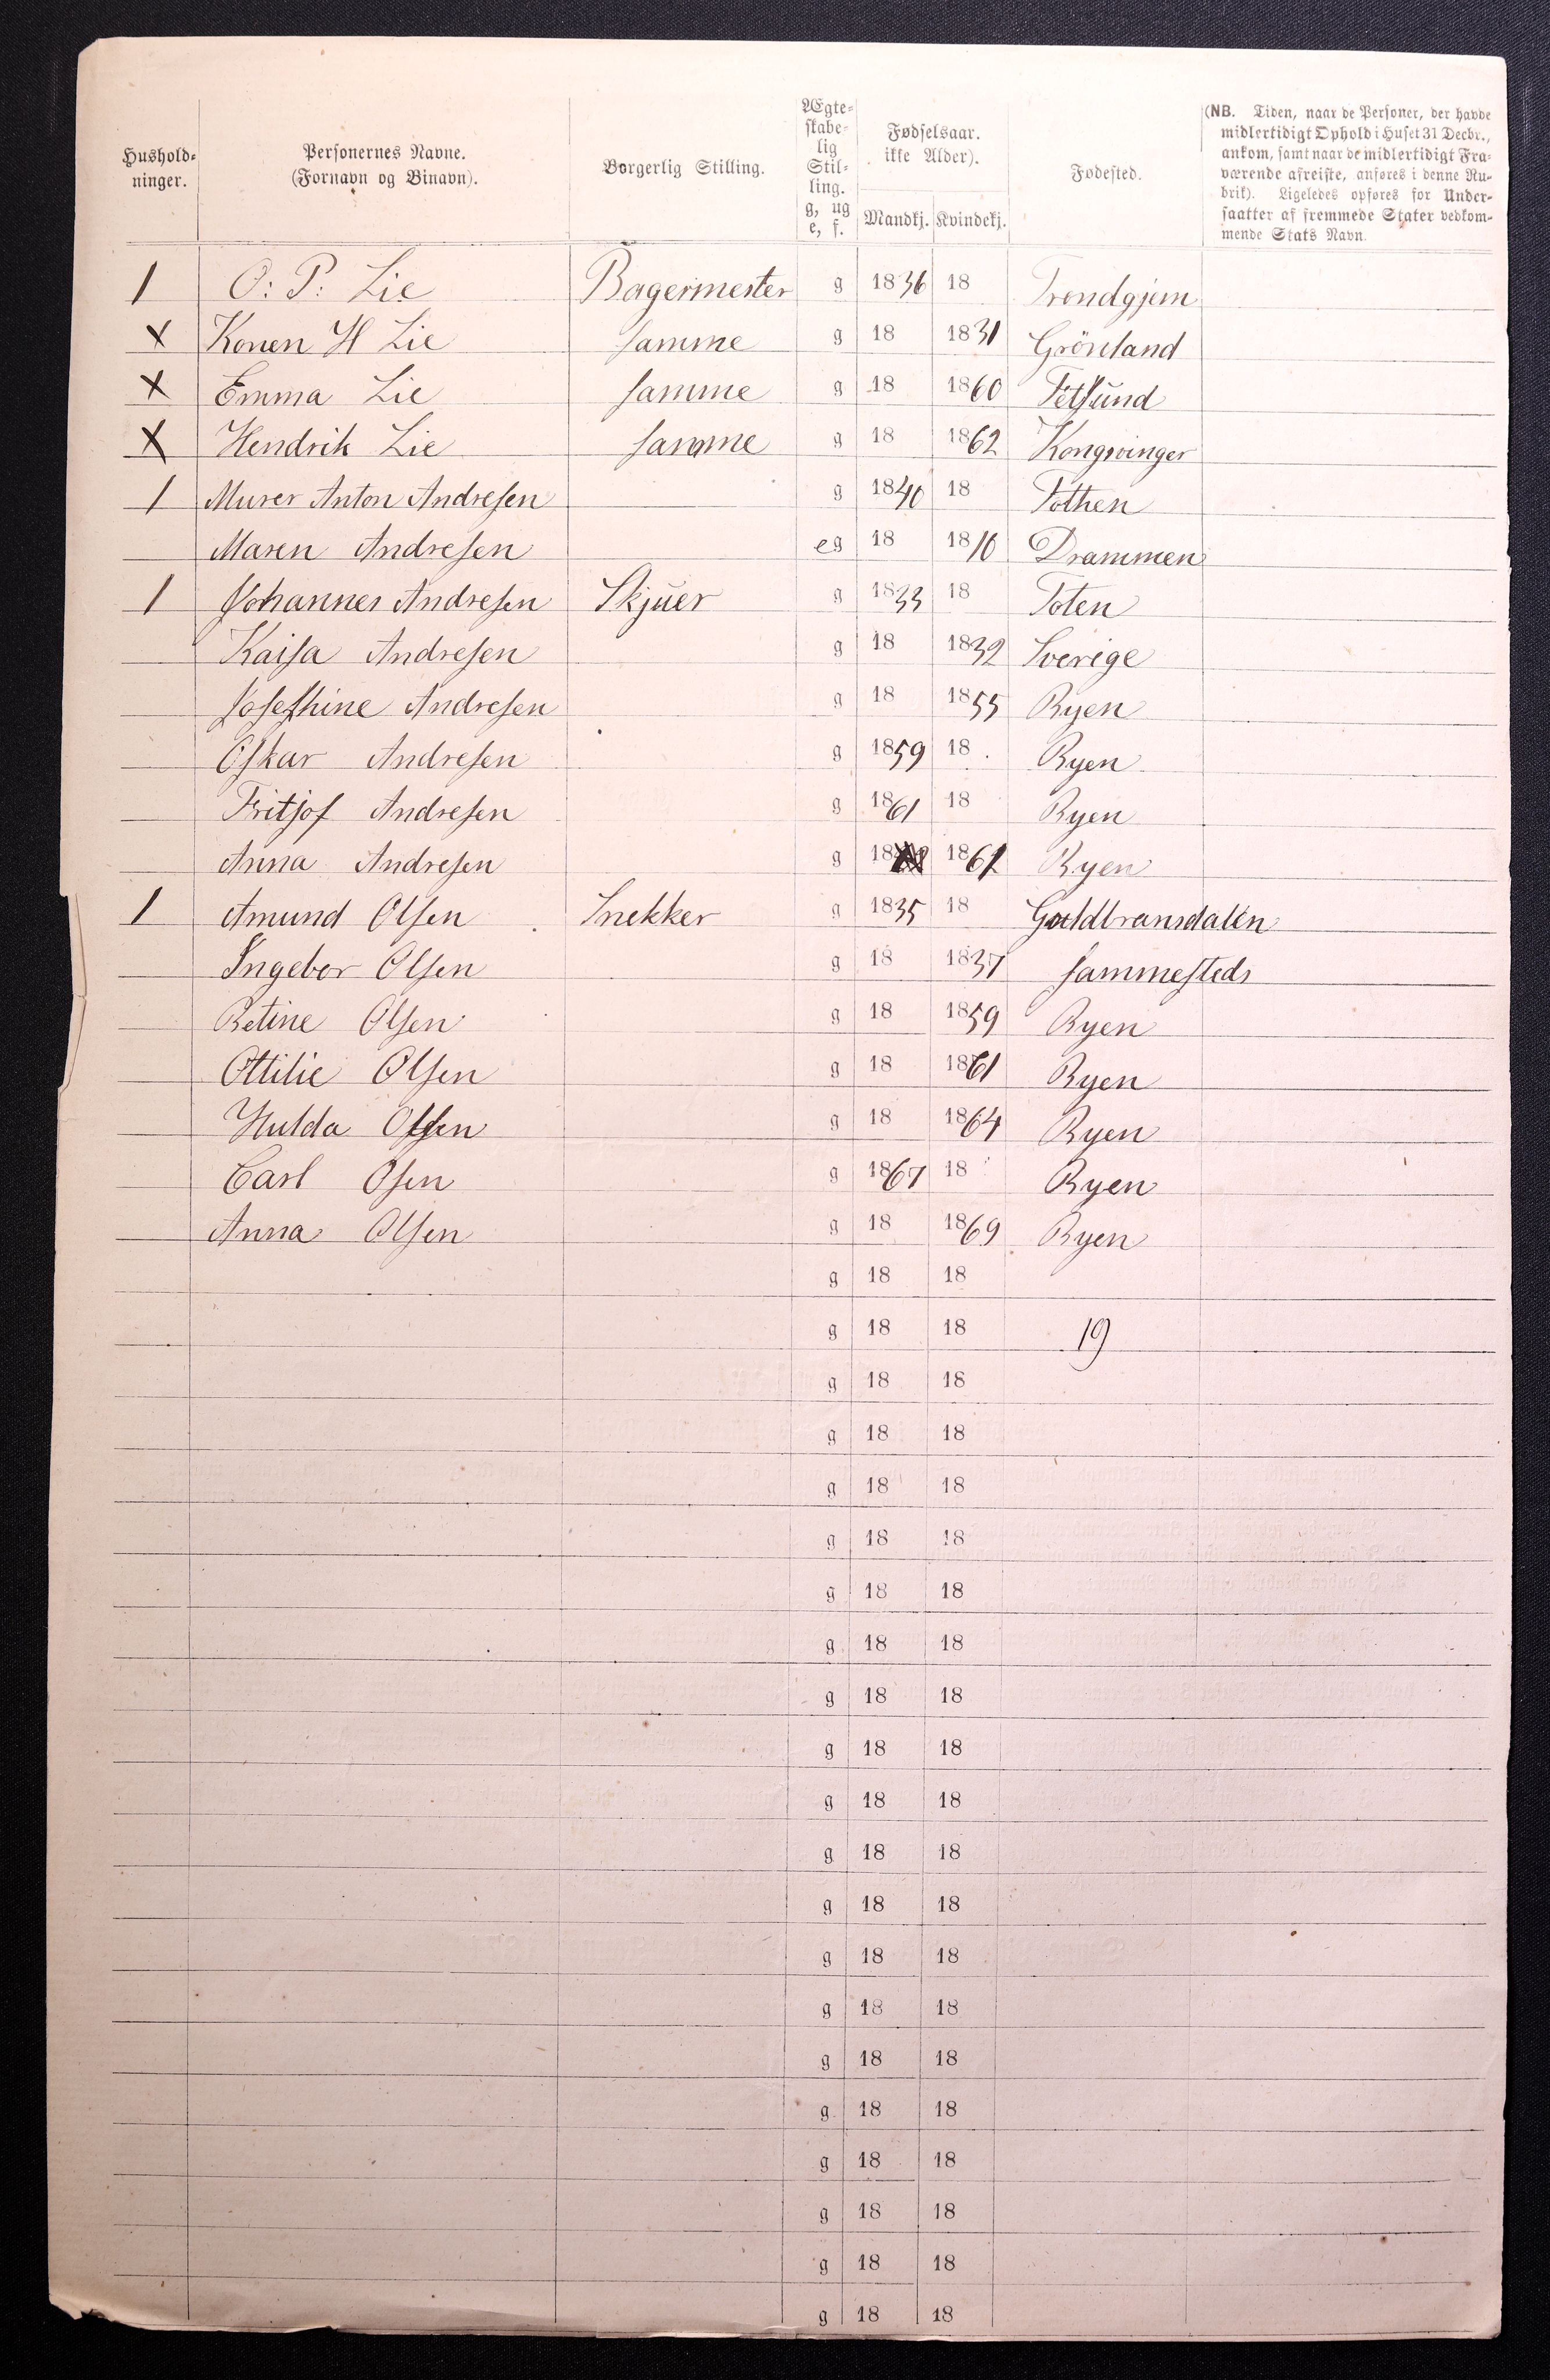 Hushold-
ninger.
Personernes Navne.
(Fornavn og Binavn).
Borgerlig Stilling.
Ægte-
skabe-
lig
Stil-
ling.
g, ug
e, f.
Fødselsaar.
ikke Alder).
Mandkj. Kvindekj.
Fødested.
(NB. Tiden, naar de Personer, der havde
midlertidigt Ophold i Huset 31 Decbr.,
ankom, samt naar de midlertidigt Fra-
værende afreiste, anføres i denne Ru-
brik). Ligeledes opføres for Under-
saatter af fremmede Stater vedkom-
mende Stats Navn.
1 O: P: Lie Bagermester g 1836 18 Trondgjem
x Konen H Lie samme g 18 1831 Grönland
x Emma Lie samme g 18 1860 Fetsund
x Hendrik Lie samme g 18 1862 Kongvinger
1 Murer Anton Andresen g 1840 18 Tothen
Maren Andresen eg 18 1810 Drammen
1 Johannes Andresen Skjuer g 1833 18 Toten
Kaisa Andresen g 18 1832 Sverige
Josephine Andresen g 18 1855 Ryen
Oskar Andresen g 1859 18 Ryen
Fritjof Andresen g 1861 18 Ryen
Anna Andresen g 18 1861 Ryen
1 Amund Olsen Snekker g 1835 18 Guldbransdalen
Ingebor Olsen g 18 1837 sammesteds
Betine Olsen g 18 1859 Ryen
Ottilie Olsen g 18 1861 Ryen
Hulda Olsen g 18 1864 Ryen
Carl Osen g 1867 18 Ryen
Anna Olsen g 18 1869 Ryen
g 18 18
g 18 18 19
g 18 18
g 18 18
g 18 18
g 18 18
g 18 18
g 18 18
g 18 18
g 18 18
g 18 18
g 18 18
g 18 18
g 18 18
g 18 18
g 18 18
g 18 18
g 18 18
g 18 18
g 18 18
g 18 18